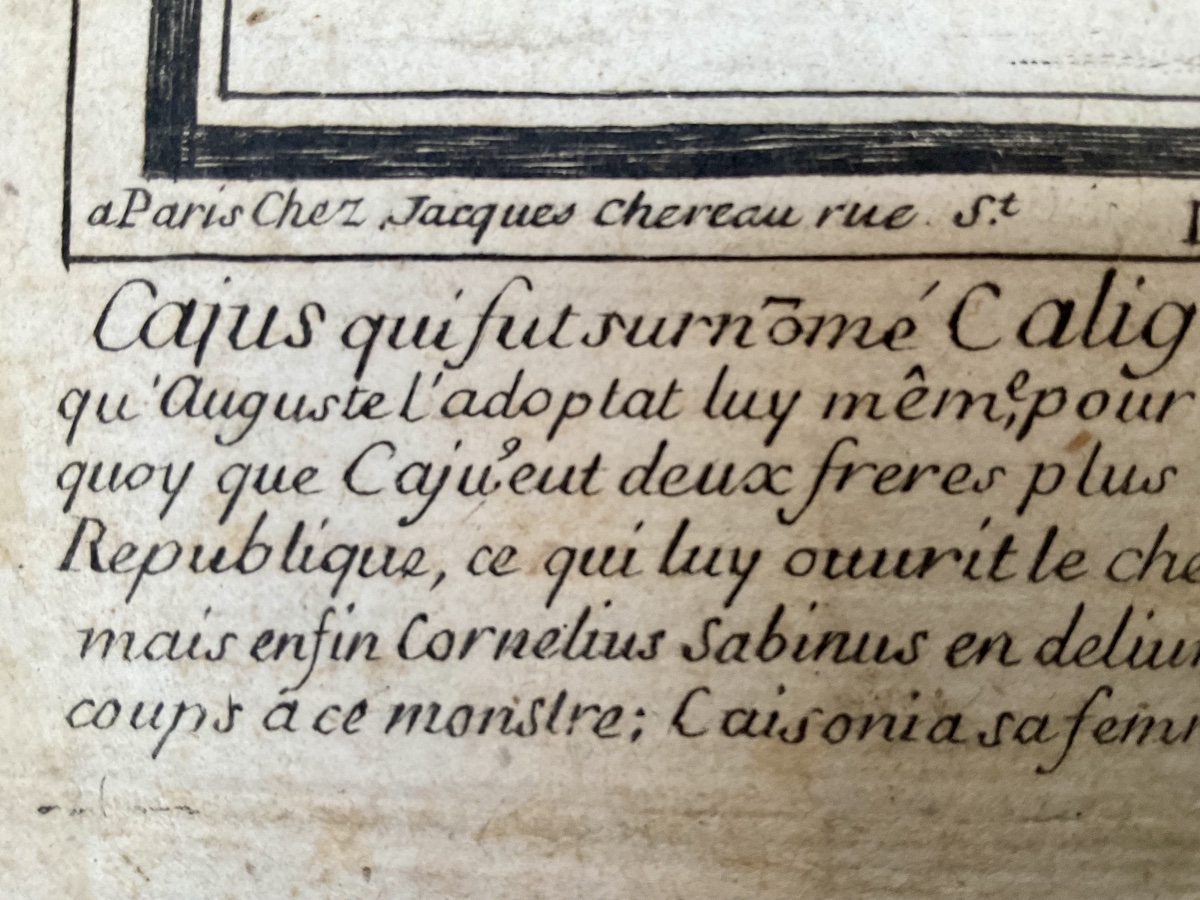 a Paris Chez Jacques Chereau rue S.t
Cajus qui fut surnōmé Calig
qu'Auguste l'adoptat luy même, pour
quoy que Caju⁹ eut deux freres plus
Republique, ce qui luy ouurit le che
mais enfin Cornelius Sabinus en deliur
coups á ce monstre; Caisonia sa femm